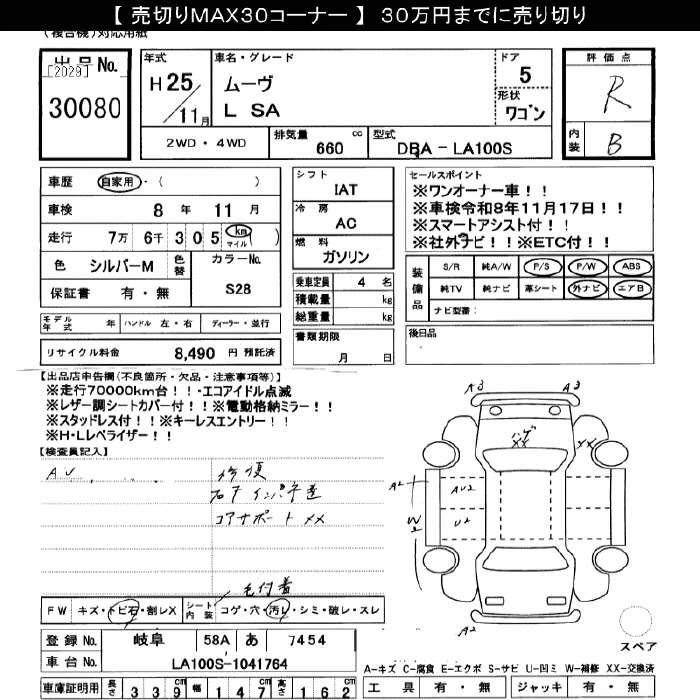 【 売切りMAX30コーナー 】 30万円までに売り切り
(複合機)対応用紙
出品No.
[2029]
30080
年式
H25
/11月
車名・グレード
ムーヴ
L SA
ドア
5
形状
ワゴン
評価点
R
内装
B
2WD・4WD
排気量 cc
660
型式
DBA-LA100S
車歴 自家用・( )
車検 8年 11月
走行 7万 6千 305 km マイル ( )
色 シルバーM
色替
カラーNo.
S28
保証書 有・無
シフト
IAT
冷房
AC
燃料
ガソリン
乗車定員 4 名
積載量 kg
総重量 kg
書類期限
月 日
セールスポイント
※ワンオーナー車！！
※車検令和8年11月17日！！
※スマートアシスト付！！
※社外ナビ！！※ETC付！！
装備品
S/R 純A/W P/S P/W ABS
純TV 純ナビ 革シート 外ナビ エアB
ナビ型番：
後日品
モデル年式 年 ハンドル 左・右 ディーラー・並行
リサイクル料金 8,490 円 預託済
【出品店申告欄(不良箇所・欠品・注意事項等)】
※走行70000km台！！・エコアイドル点滅
※レザー調シートカバー付！！※電動格納ミラー！！
※スタッドレス付！！※キーレスエントリー！！
※H・Lレベライザー！！
【検査員記入】
AU
修復
右Fインパネ迄
コアサポートXX
毛付着
FW キズ・トビ石・割レX
シート内装 コゲ・穴・汚レ・シミ・破レ・スレ
A3 A3
ハゲ
XX
XX
A2
W2
AU2
U2
A2
スペア
登録No. 岐阜 58A あ 7454
車台No. LA100S-1041764
車庫証明用 長さ 339 幅 147 高さ 162
A-キズ C-腐食 E-エクボ S-サビ U-凹ミ W-補修 XX-交換済
工具 有・無 ジャッキ 有・無